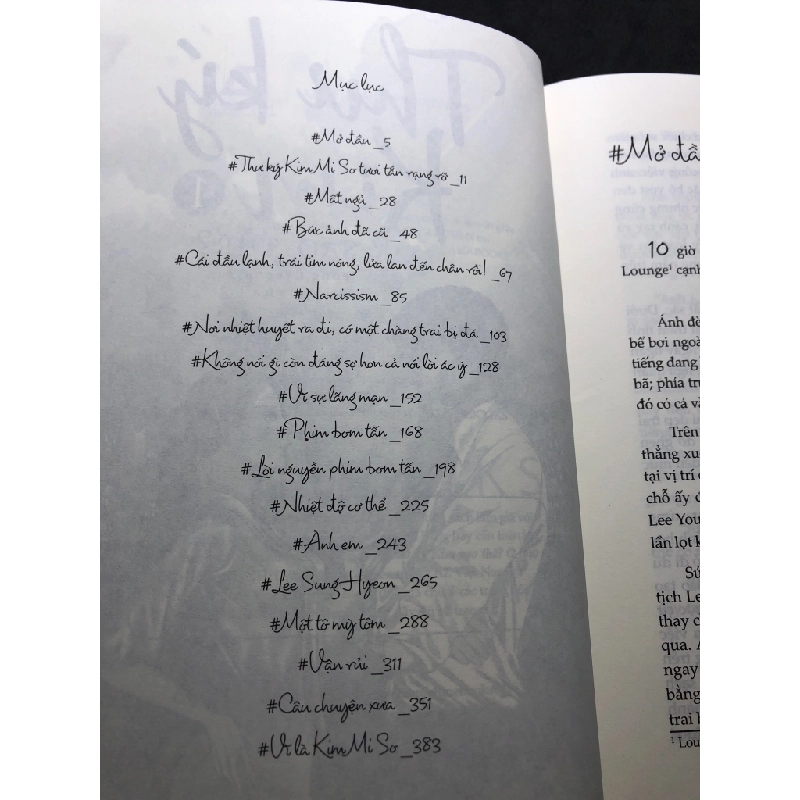 Mục lục
#Mở đầu_5
#Thư ký Kim Mi So tươi tắn rạng rỡ_11
#Mất ngủ_28
#Bức ảnh đã cũ_48
#Cái đầu lạnh, trái tim nóng, lửa lan đến chân rồi!_67
#Narcissism_85
#Nơi nhiệt huyết ra đi, có một chàng trai bị đá_103
#Không nói gì còn đáng sợ hơn cả nói lời ác ý_128
#Vì sự lãng mạn_152
#Phim bom tấn_168
#Lời nguyền phim bom tấn_198
#Nhiệt độ cơ thể_225
#Anh em_243
#Lee Sung Hyeon_265
#Một tô mỳ tôm_288
#Vận rủi_311
#Câu chuyện xưa_351
#Vì là Kim Mi So_383
#Mở đầ
10 giờ
Lounge¹ cạnh
Ánh đè
bế bơi ngoà
tiếng đang
bã; phía tr
đó có cả và
Trên
thẳng xu
tại vị trí
chỗ ấy
Lee You
lần lọt k
Sú
tịch Le
thay c
qua.
ngay
bằng
trai
¹ Lou